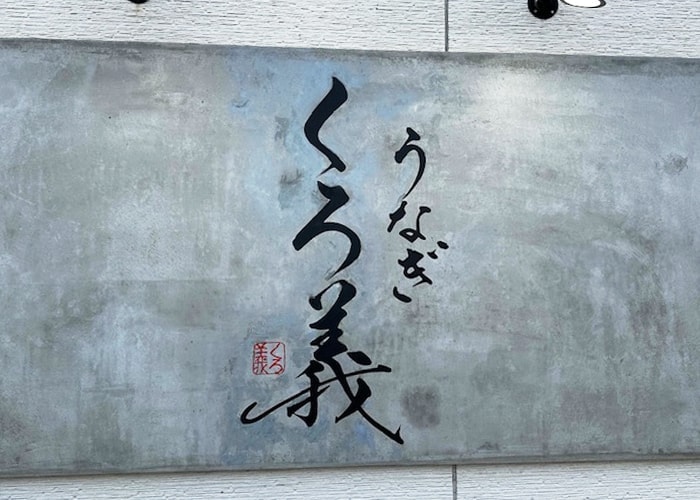 うなぎ
くろ義
くろ
義